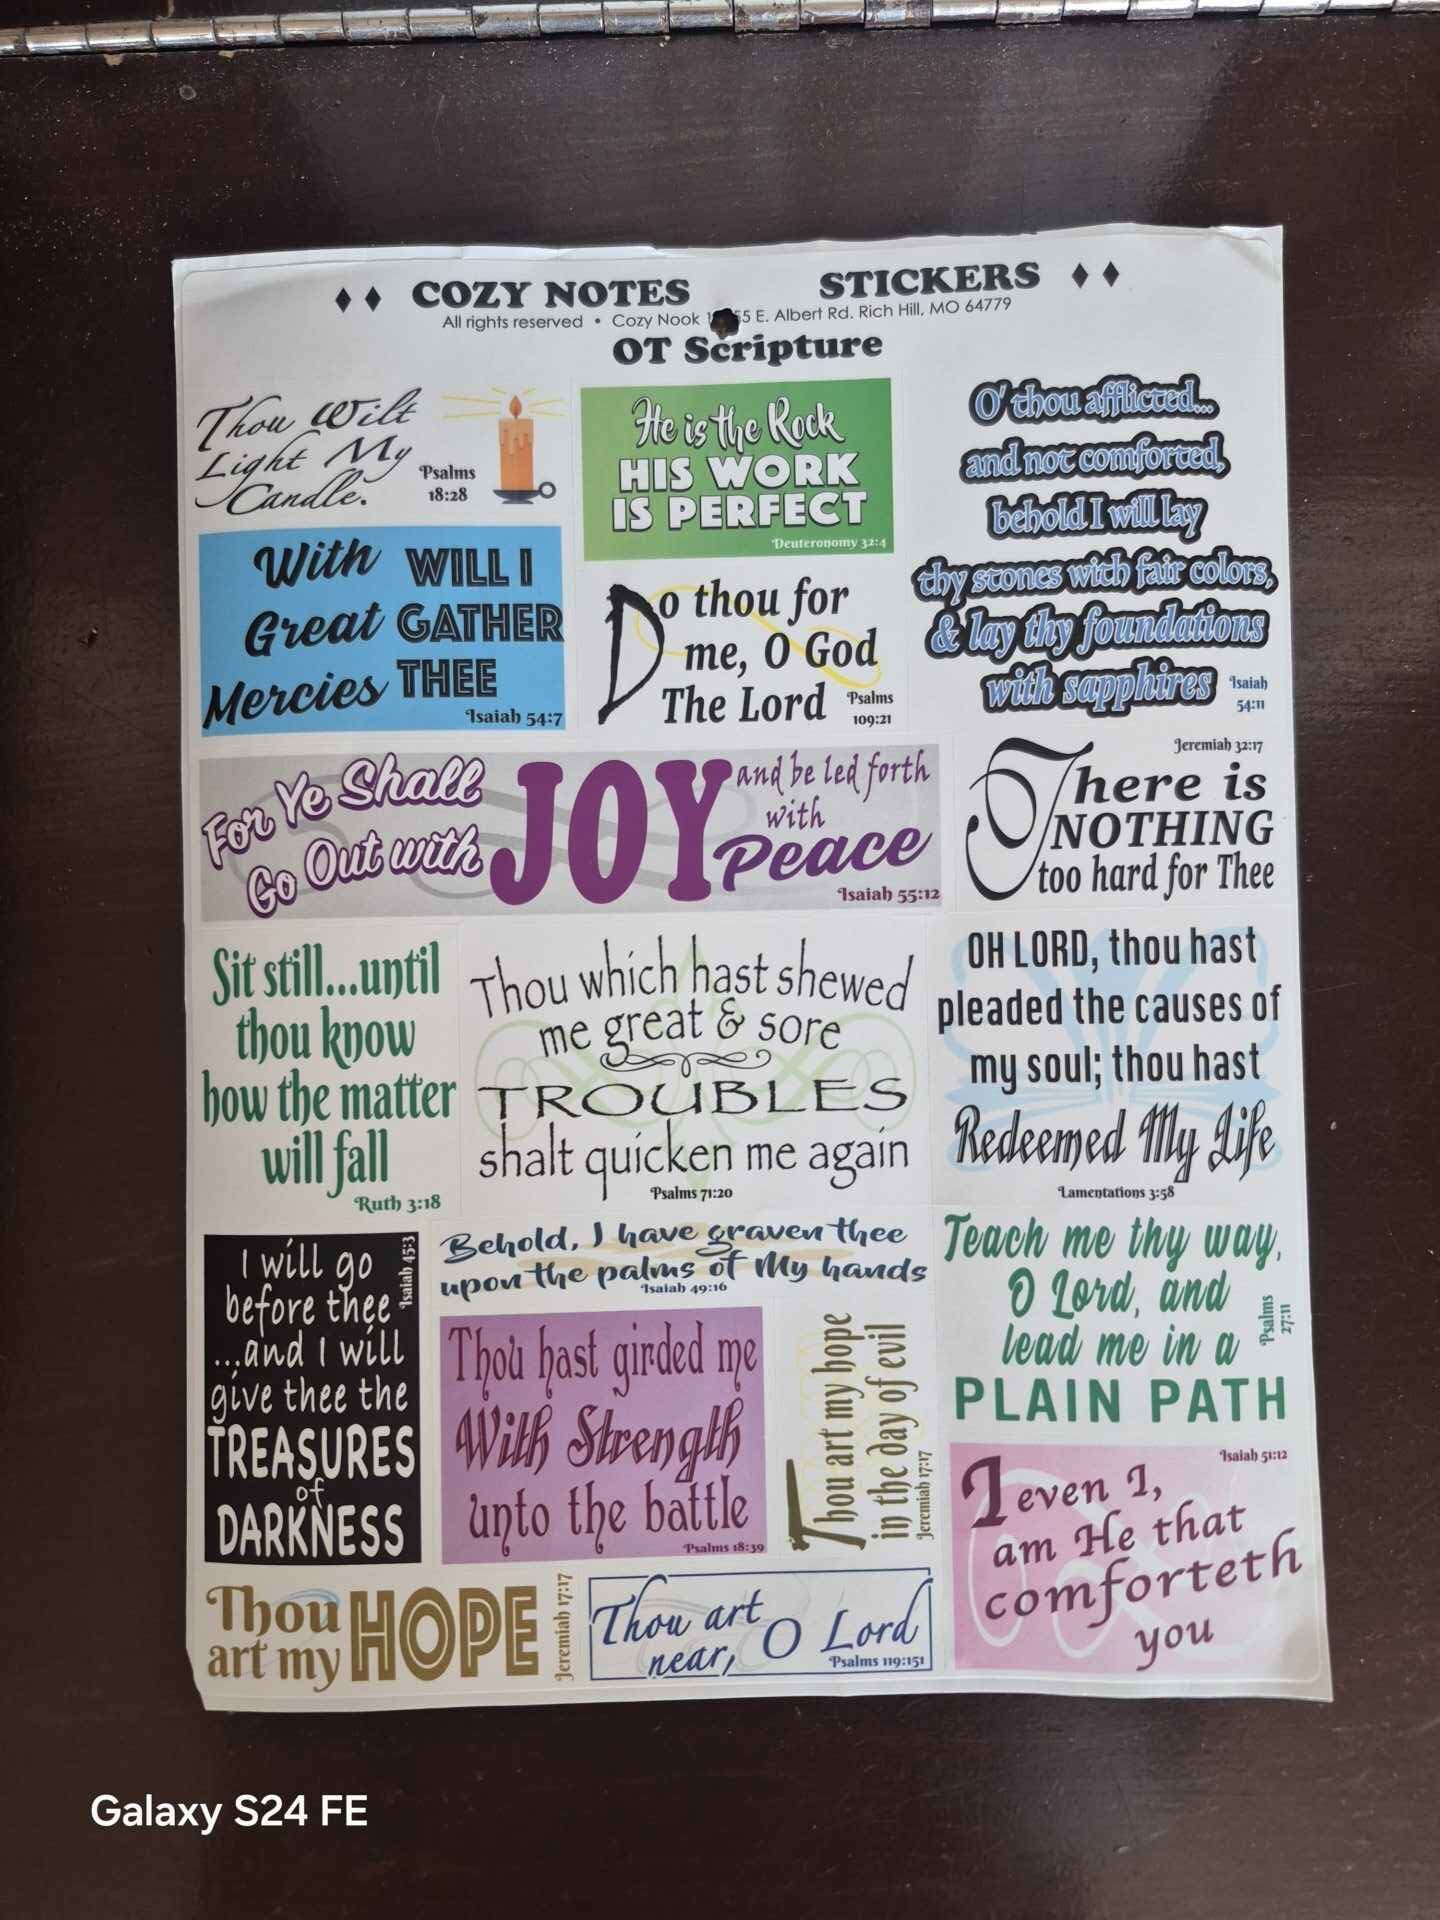 ♦♦ COZY NOTES STICKERS ♦♦
All rights reserved • Cozy Nook E. Albert Rd. Rich Hill, MO 64779
OT Scripture
Thou Wilt
Light My
Candle.
Psalms
18:28
He is the Rock
HIS WORK
IS PERFECT
Deuteronomy 32:4
O' thou afflicted...
and not comforted,
behold I will lay
thy stones with fair colors,
& lay thy foundations
with sapphires
Isaiah
54:11
With
Great
Mercies
WILL I
GATHER
THEE
Isaiah 54:7
Do thou for
me, O God
The Lord
Psalms
109:21
For Ye Shall
Go Out with
JOY
and be led forth
with
Peace
Isaiah 55:12
Jeremiah 32:17
There is
NOTHING
too hard for Thee
Sit still...until
thou know
how the matter
will fall
Ruth 3:18
Thou which hast shewed
me great & sore
TROUBLES
shalt quicken me again
Psalms 71:20
OH LORD, thou hast
pleaded the causes of
my soul; thou hast
Redeemed My Life
Lamentations 3:58
I will go
before thee
...and I will
give thee the
TREASURES
of
DARKNESS
Isaiah 45:3
Behold, I have graven thee
upon the palms of My hands
Isaiah 49:16
Teach me thy way,
O Lord, and
lead me in a
PLAIN PATH
Psalms
27:11
Thou hast girded me
With Strength
unto the battle
Psalms 18:39
Thou art my hope
in the day of evil
Jeremiah 17:17
Isaiah 51:12
I even I,
am He that
comforteth
you
Thou
art my
HOPE
Jeremiah 17:17
Thou art
near, O Lord
Psalms 119:151
Galaxy S24 FE